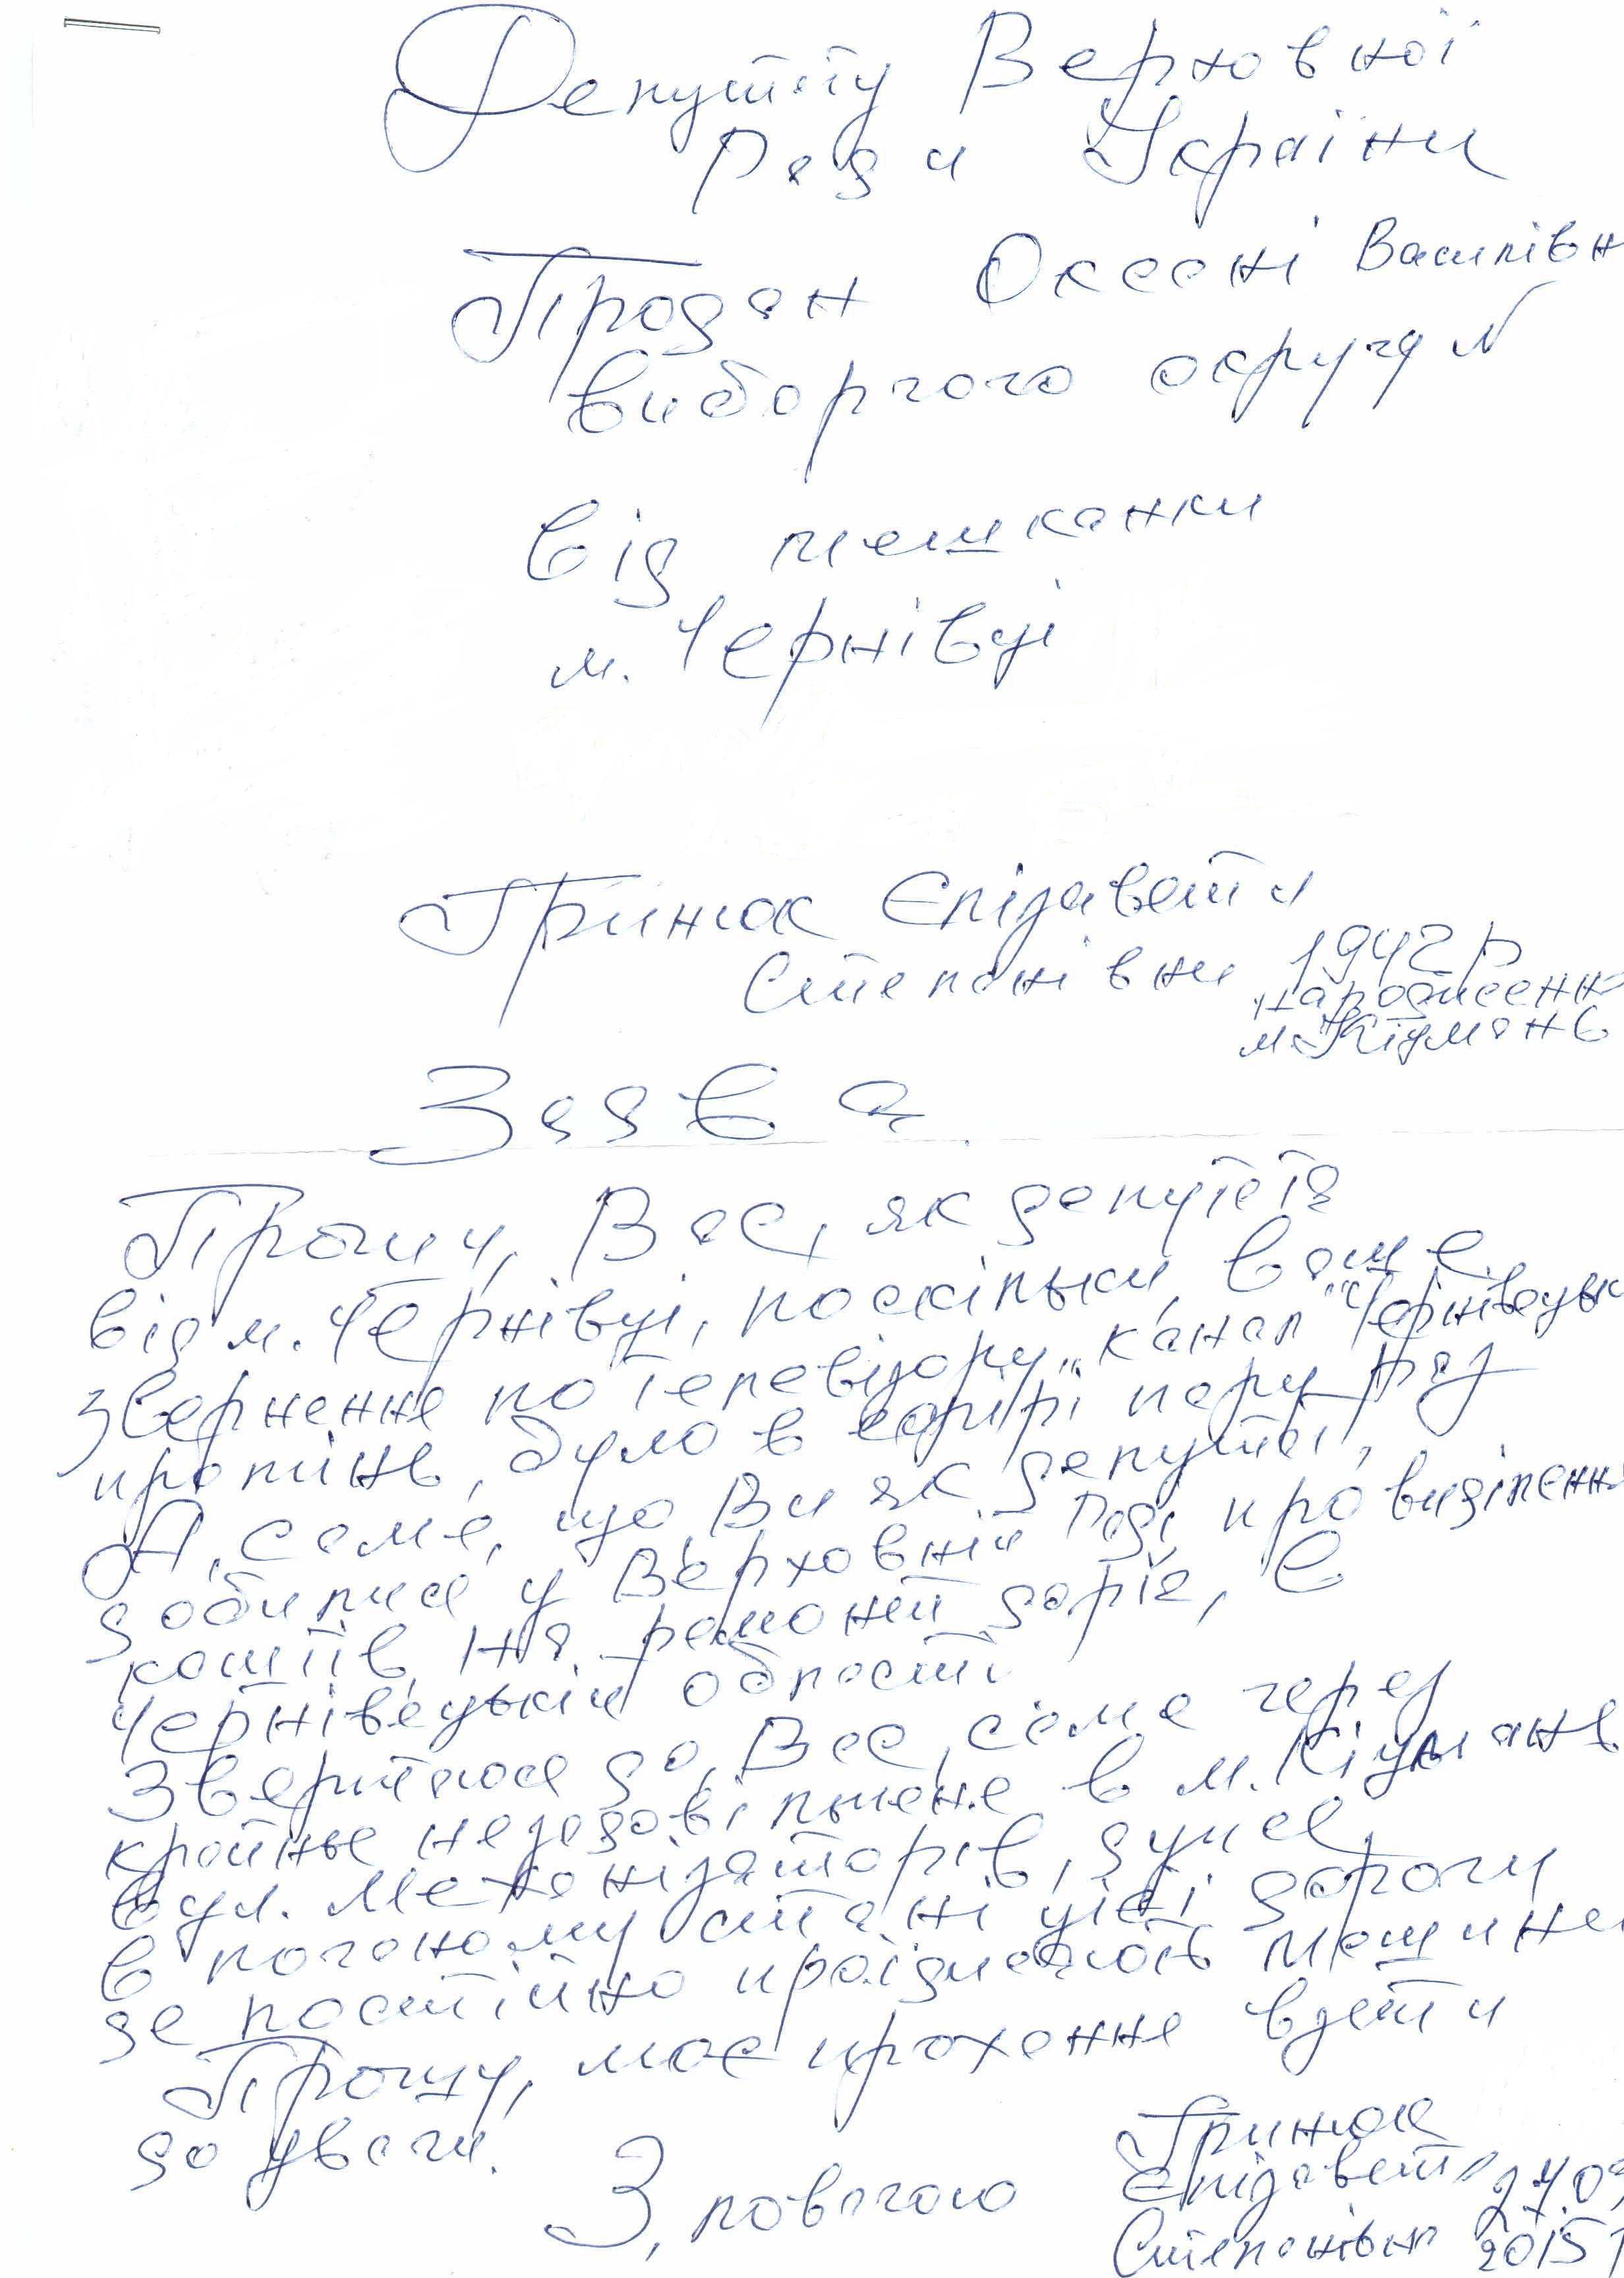 Депутату Верховної
Ради України
Продан Оксані Василівн
виборчого округу №
від мешканки
м. Чернівці
Гринюк Єлізавети
Степанівни 1942 р
народження
м. Кіцмань
Заява
Прошу, Вас, як депутата
від м. Чернівці, поскільки, ваше
звернення по телевізору, "канал "Чернівецьк
промінь, було в ефірі пару раз
А, саме, що, Ви як депутат,
добилися у Верховній Раді про виділення
коштів, на ремонт доріг, в
Чернівецькій області
Звертаюся до, Вас, саме через
крайнє незадовільнене в м. Кіцмань
вул. Механізаторів, дуже,
в поганому стані цієї дороги
де постійно проїзжають машини
Прошу, моє прохання взяти
до уваги.
З, повагою
Гринюк
Єлізавета 27.09
Степанівна 2015 р